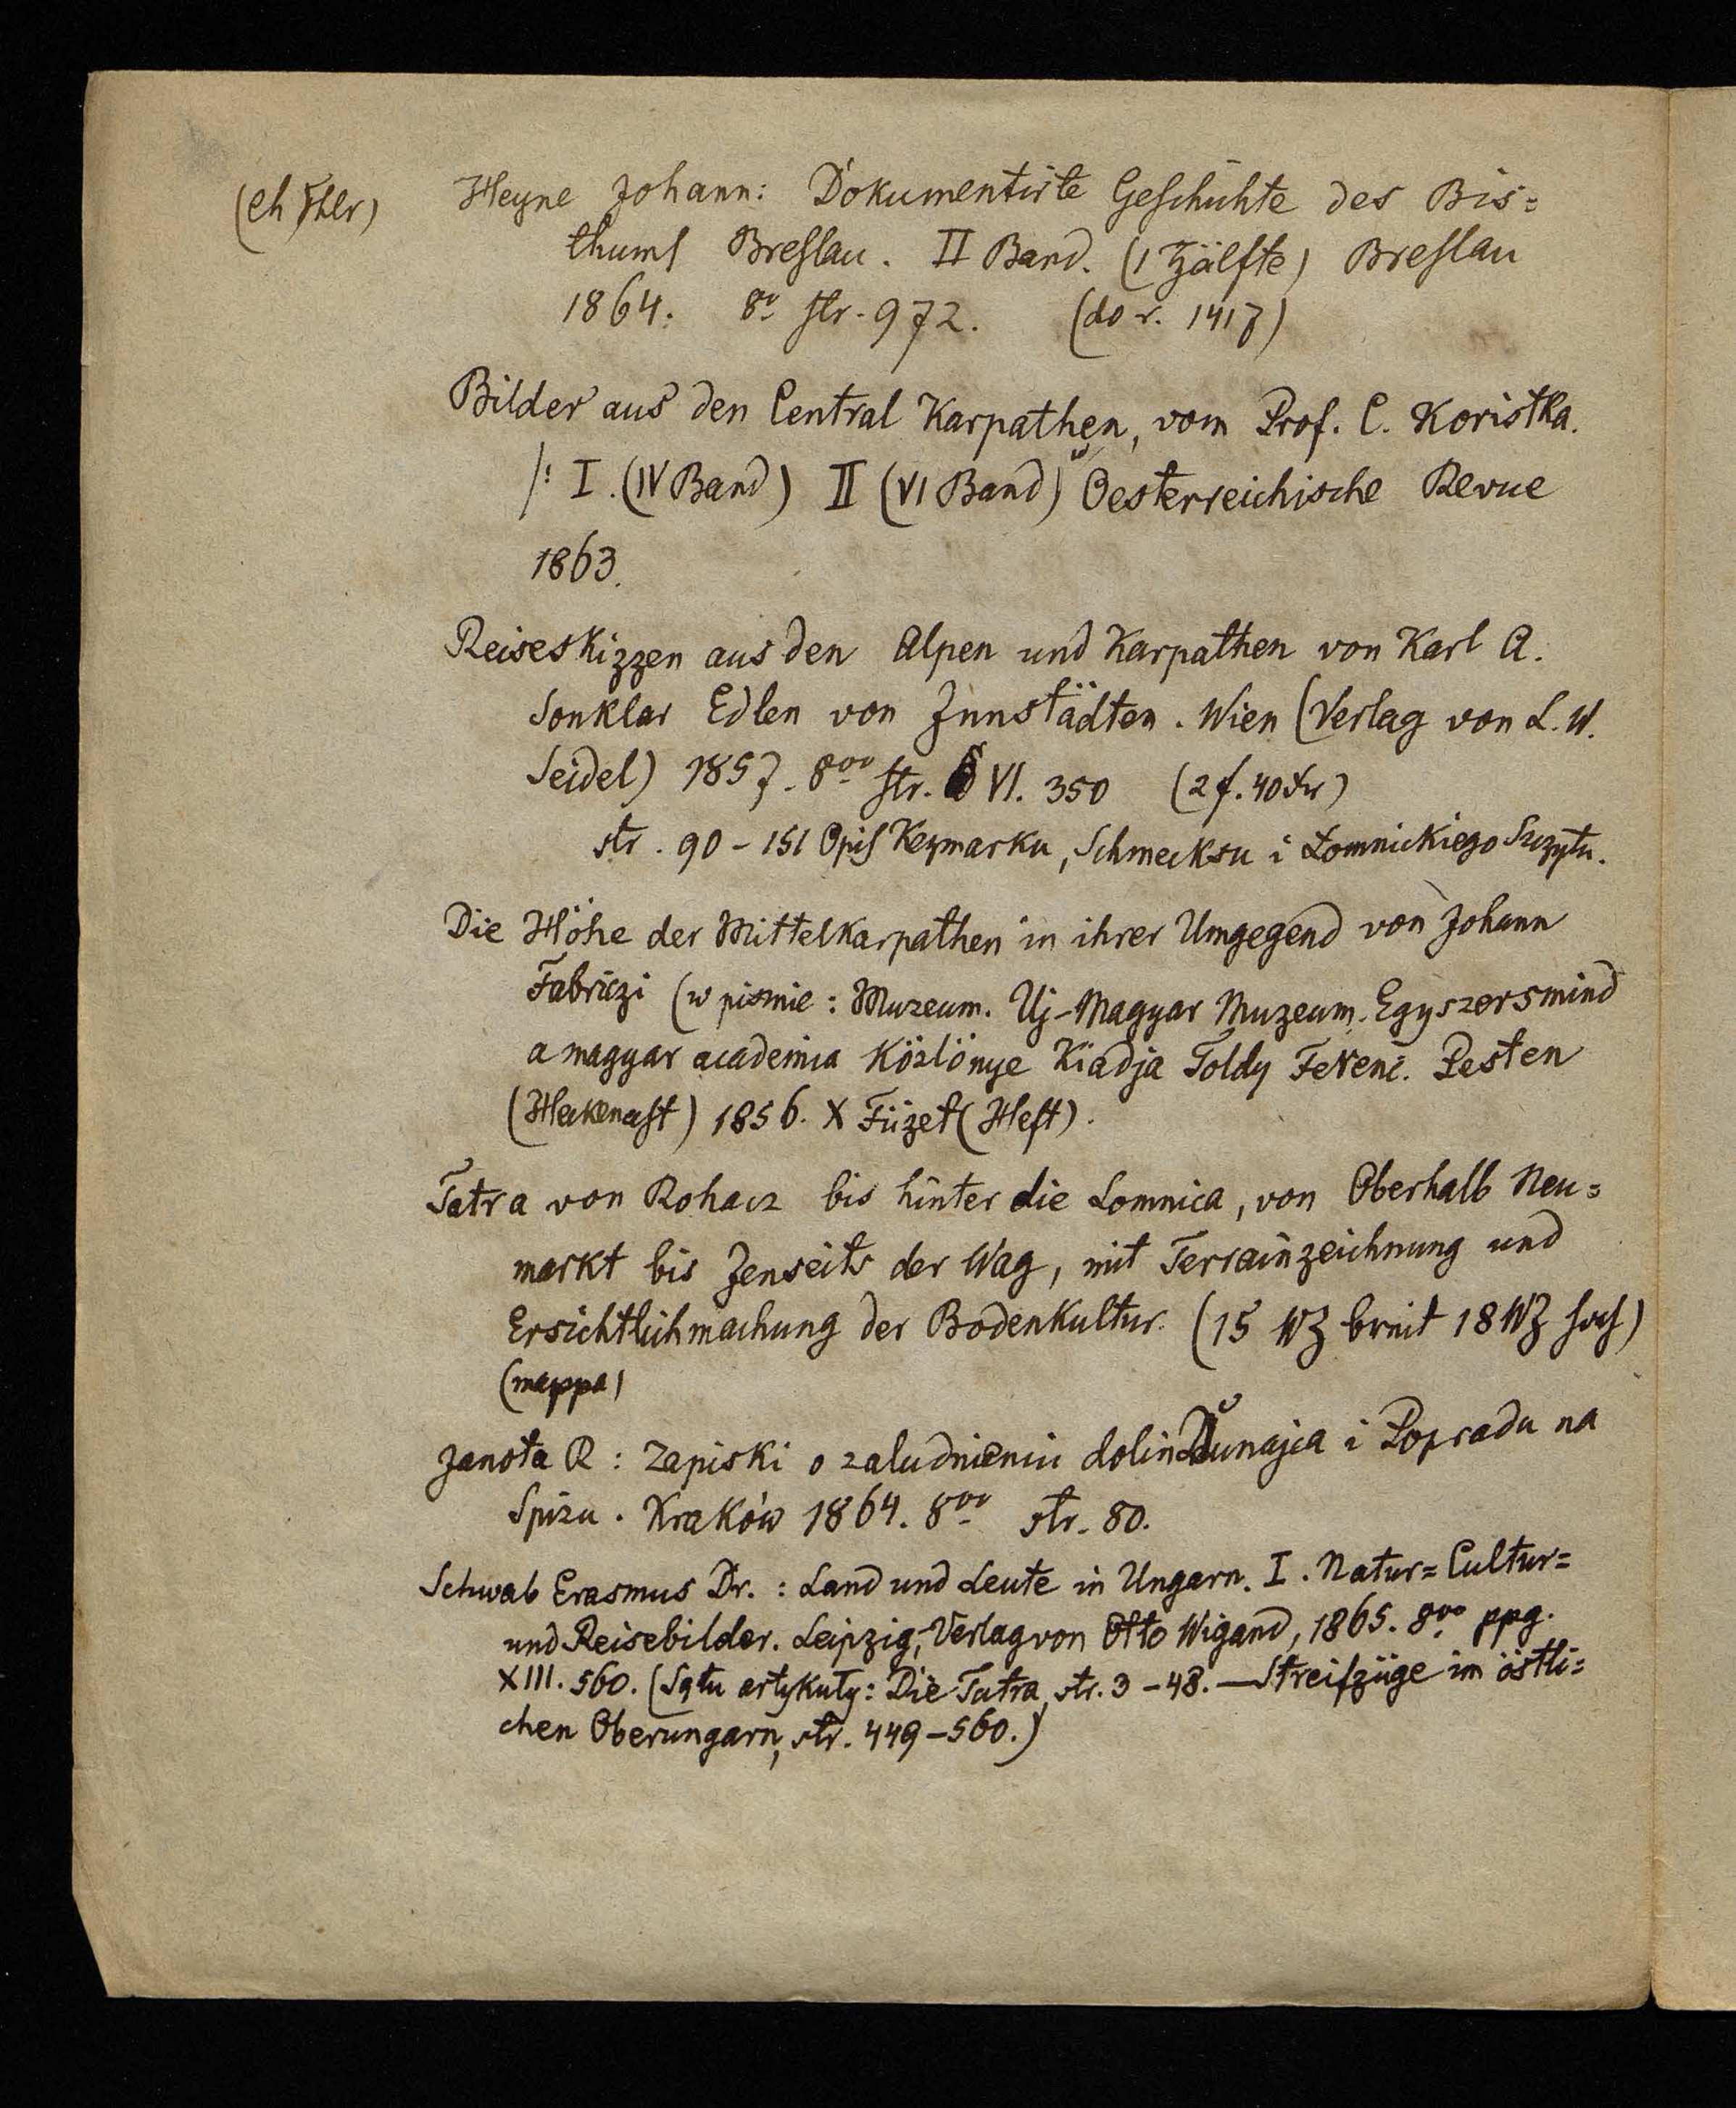 Heyne Johann: Dokumentirte Geschichte des Bis=
thums Breslau. II Band. (1 Hälfte) Breslau
1864. 8o str. 972. (do r. 1417)
Bilder aus den Central Karpathen, vom Prof. C. Koristka.
/: I. (IV Band) II (VI Band) w Oesterreichische Revue
1863.
Reiseskizzen aus den Alpen und Karpathen von Karl A.
Sonklar Edlen von Innstädten. Wien (Verlag von L. W.
Seidel) 1857. 8vo str. VI. 350 (2 f. 40 xr)
str. 90 – 151 Opis Keymarku, Schmecksu i Lomnickiego Szczytu.
Die Höhe der Mittelkarpathen in ihrer Umgegend von Johann
Fabriczi (w pismie: Muzeum. Uj-Magyar Muzeum. Egyszersmind
a magyar academia Közlönye Kiadja Toldy Ferenc. Pesten
(Hekenast) 1856. X Füzet (Heft).
Tatra von Rohacz bis hinter die Lomnica, von Oberhalb Neu=
markt bis Jenseits der Wag, mit Terrainzeichnung und
Ersichtlichmachung der Bodenkultur. (15 WZ breit 18 WZ hoch)
(mappa)
Janota R: Zapiski o zaludnieniu dolin Dunajca i Popradu na
Spizu. Kraków 1864. 8vo str. 80.
Schwab Erasmus Dr.: Land und Leute in Ungarn. I. Natur= Cultur=
und Reisebilder. Leipzig, Verlag von Otto Wigand, 1865. 8vo ppg.
XIII. 560. (Są tu artykuły: Die Tatra, str. 3 – 48. — Streifzüge im östli=
chen Oberungarn, str. 449 – 560.)